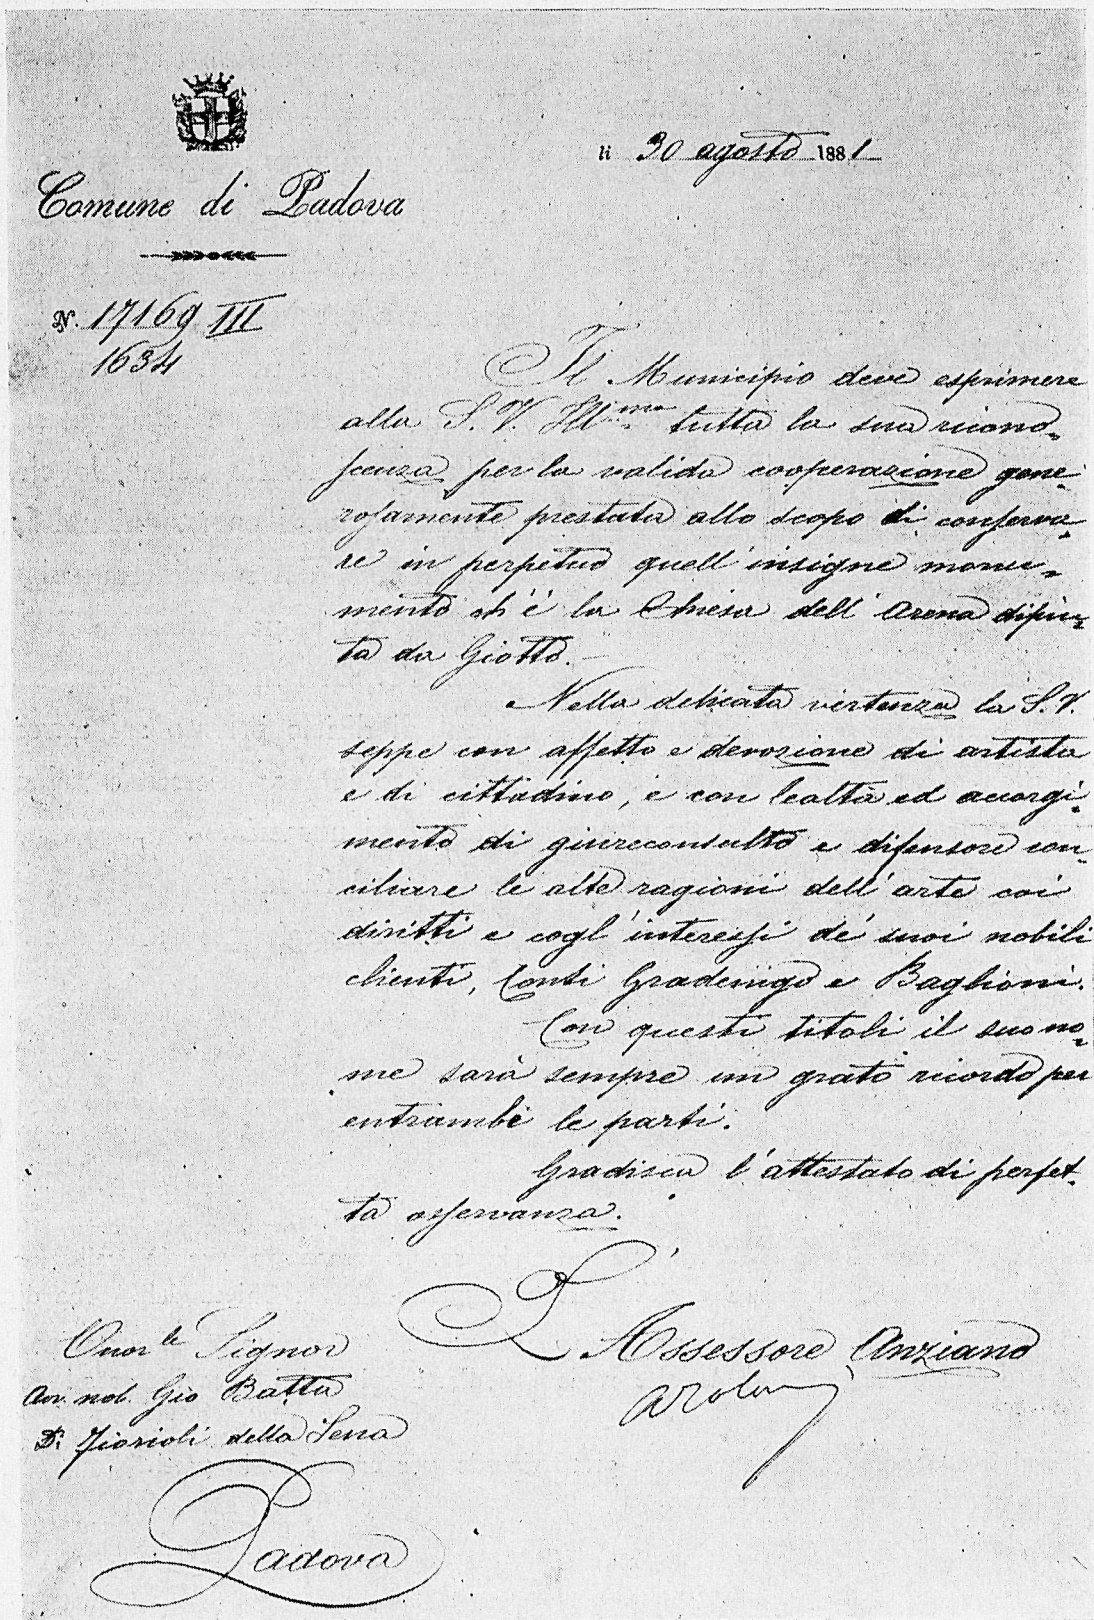 li 30 agosto 1881
Comune di Padova
N. 17169 III
1634
Il Municipio deve esprimere
alla S. V. Ill.ma tutta la sua ricono=
scenza per la valida cooperazione gene=
rosamente prestata allo scopo di conserva=
re in perpetuo quell'insigne monu=
mento ch'è la Chiesa dell'Arena dipin=
ta da Giotto.—
Nella delicata vertenza la S. V.
seppe con affetto e devozione di artista
e di cittadino, e con lealtà ed accorgi=
mento di giureconsulto e difensore con=
ciliare le alte ragioni dell'arte coi
diritti e cogl'interessi de' suoi nobili
clienti, Conti Gradenigo e Baglioni.
Con questi titoli il suo no=
me sarà sempre un grato ricordo per
entrambe le parti.
Gradisca l'attestato di perfet=
ta osservanza.
L'Assessore Anziano
Onor.le Signor
Avv. nob. Gio Batta
Di Fiorioli della Lena
Padova